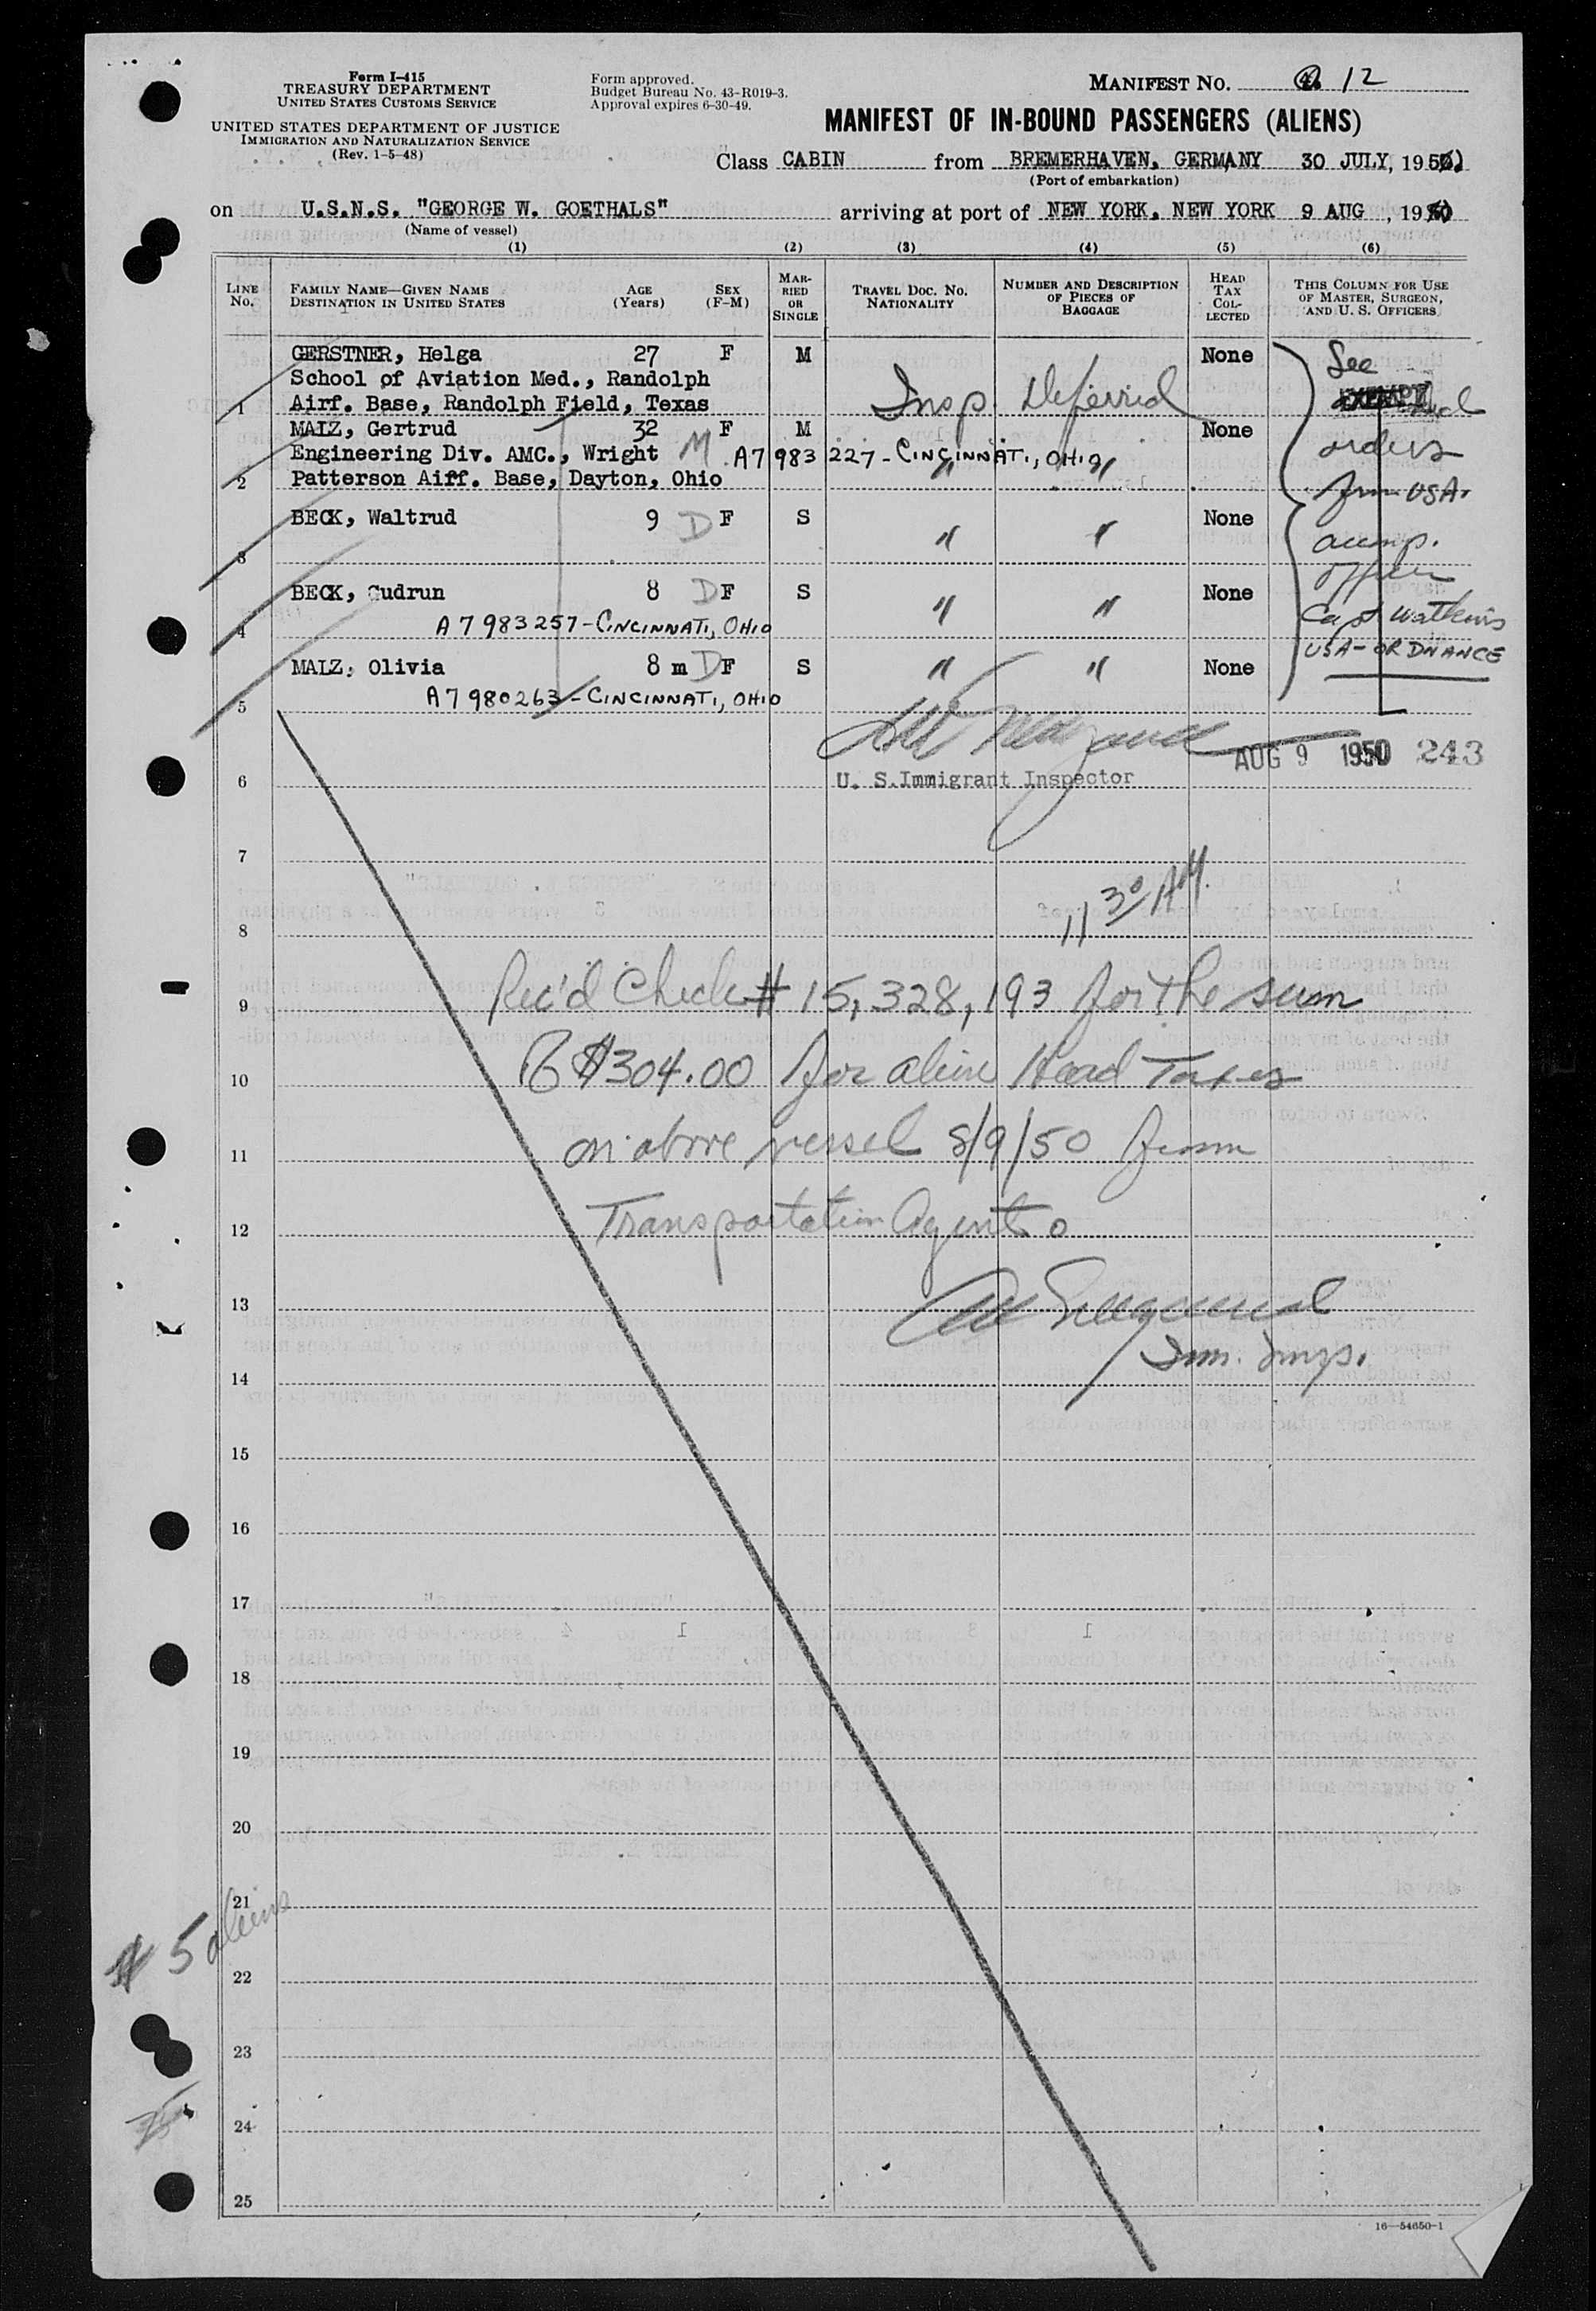 Form I-415
TREASURY DEPARTMENT
UNITED STATES CUSTOMS SERVICE
UNITED STATES DEPARTMENT OF JUSTICE
IMMIGRATION AND NATURALIZATION SERVICE
(Rev. 1-5-48)
Form approved.
Budget Bureau No. 43-R019-3.
Approval expires 6-30-49.
MANIFEST NO. 12
MANIFEST OF IN-BOUND PASSENGERS (ALIENS)
Class CABIN from BREMERHAVEN, GERMANY 30 JULY, 1950
(Port of embarkation)
on U.S.N.S. "GEORGE W. GOETHALS" arriving at port of NEW YORK, NEW YORK 9 AUG, 1950
(Name of vessel)
(1) (2) (3) (4) (5) (6)
LINE No.
FAMILY NAME—GIVEN NAME
DESTINATION IN UNITED STATES
AGE (Years)
SEX (F-M)
MARRIED OR SINGLE
TRAVEL DOC. NO. NATIONALITY
NUMBER AND DESCRIPTION OF PIECES OF BAGGAGE
HEAD TAX COLLECTED
THIS COLUMN FOR USE OF MASTER, SURGEON, AND U. S. OFFICERS
GERSTNER, Helga 27 F M None See
School of Aviation Med., Randolph
1 Airf. Base, Randolph Field, Texas Insp. Deferred
MALZ, Gertrud 32 F M None orders
Engineering Div. AMC., Wright M A7 983 227 - CINCINNATI, OHIO " "
2 Patterson Airf. Base, Dayton, Ohio from USA.
BECK, Waltrud 9 D F S None
3 " " accomp.
officer
BECK, Gudrun 8 D F S " " None Capt Watkins
4 A7 983257 - CINCINNATI, OHIO
USA - ORDNANCE
MALZ, Olivia 8 m D F S " " None
5 A7 980263 - CINCINNATI, OHIO
AUG 9 1950 243
6 U. S. Immigrant Inspector
7
11 30 AM.
8
9 Rec'd Check # 15,328,193 for the sum
10 of $304.00 for alien Head Taxes
11 on above vessel 8/9/50 from
12 Transportation Agent
13
Imm. Insp.
14
15
16
17
18
19
20
21
5 aliens
22
23
24
25
16—54650-1